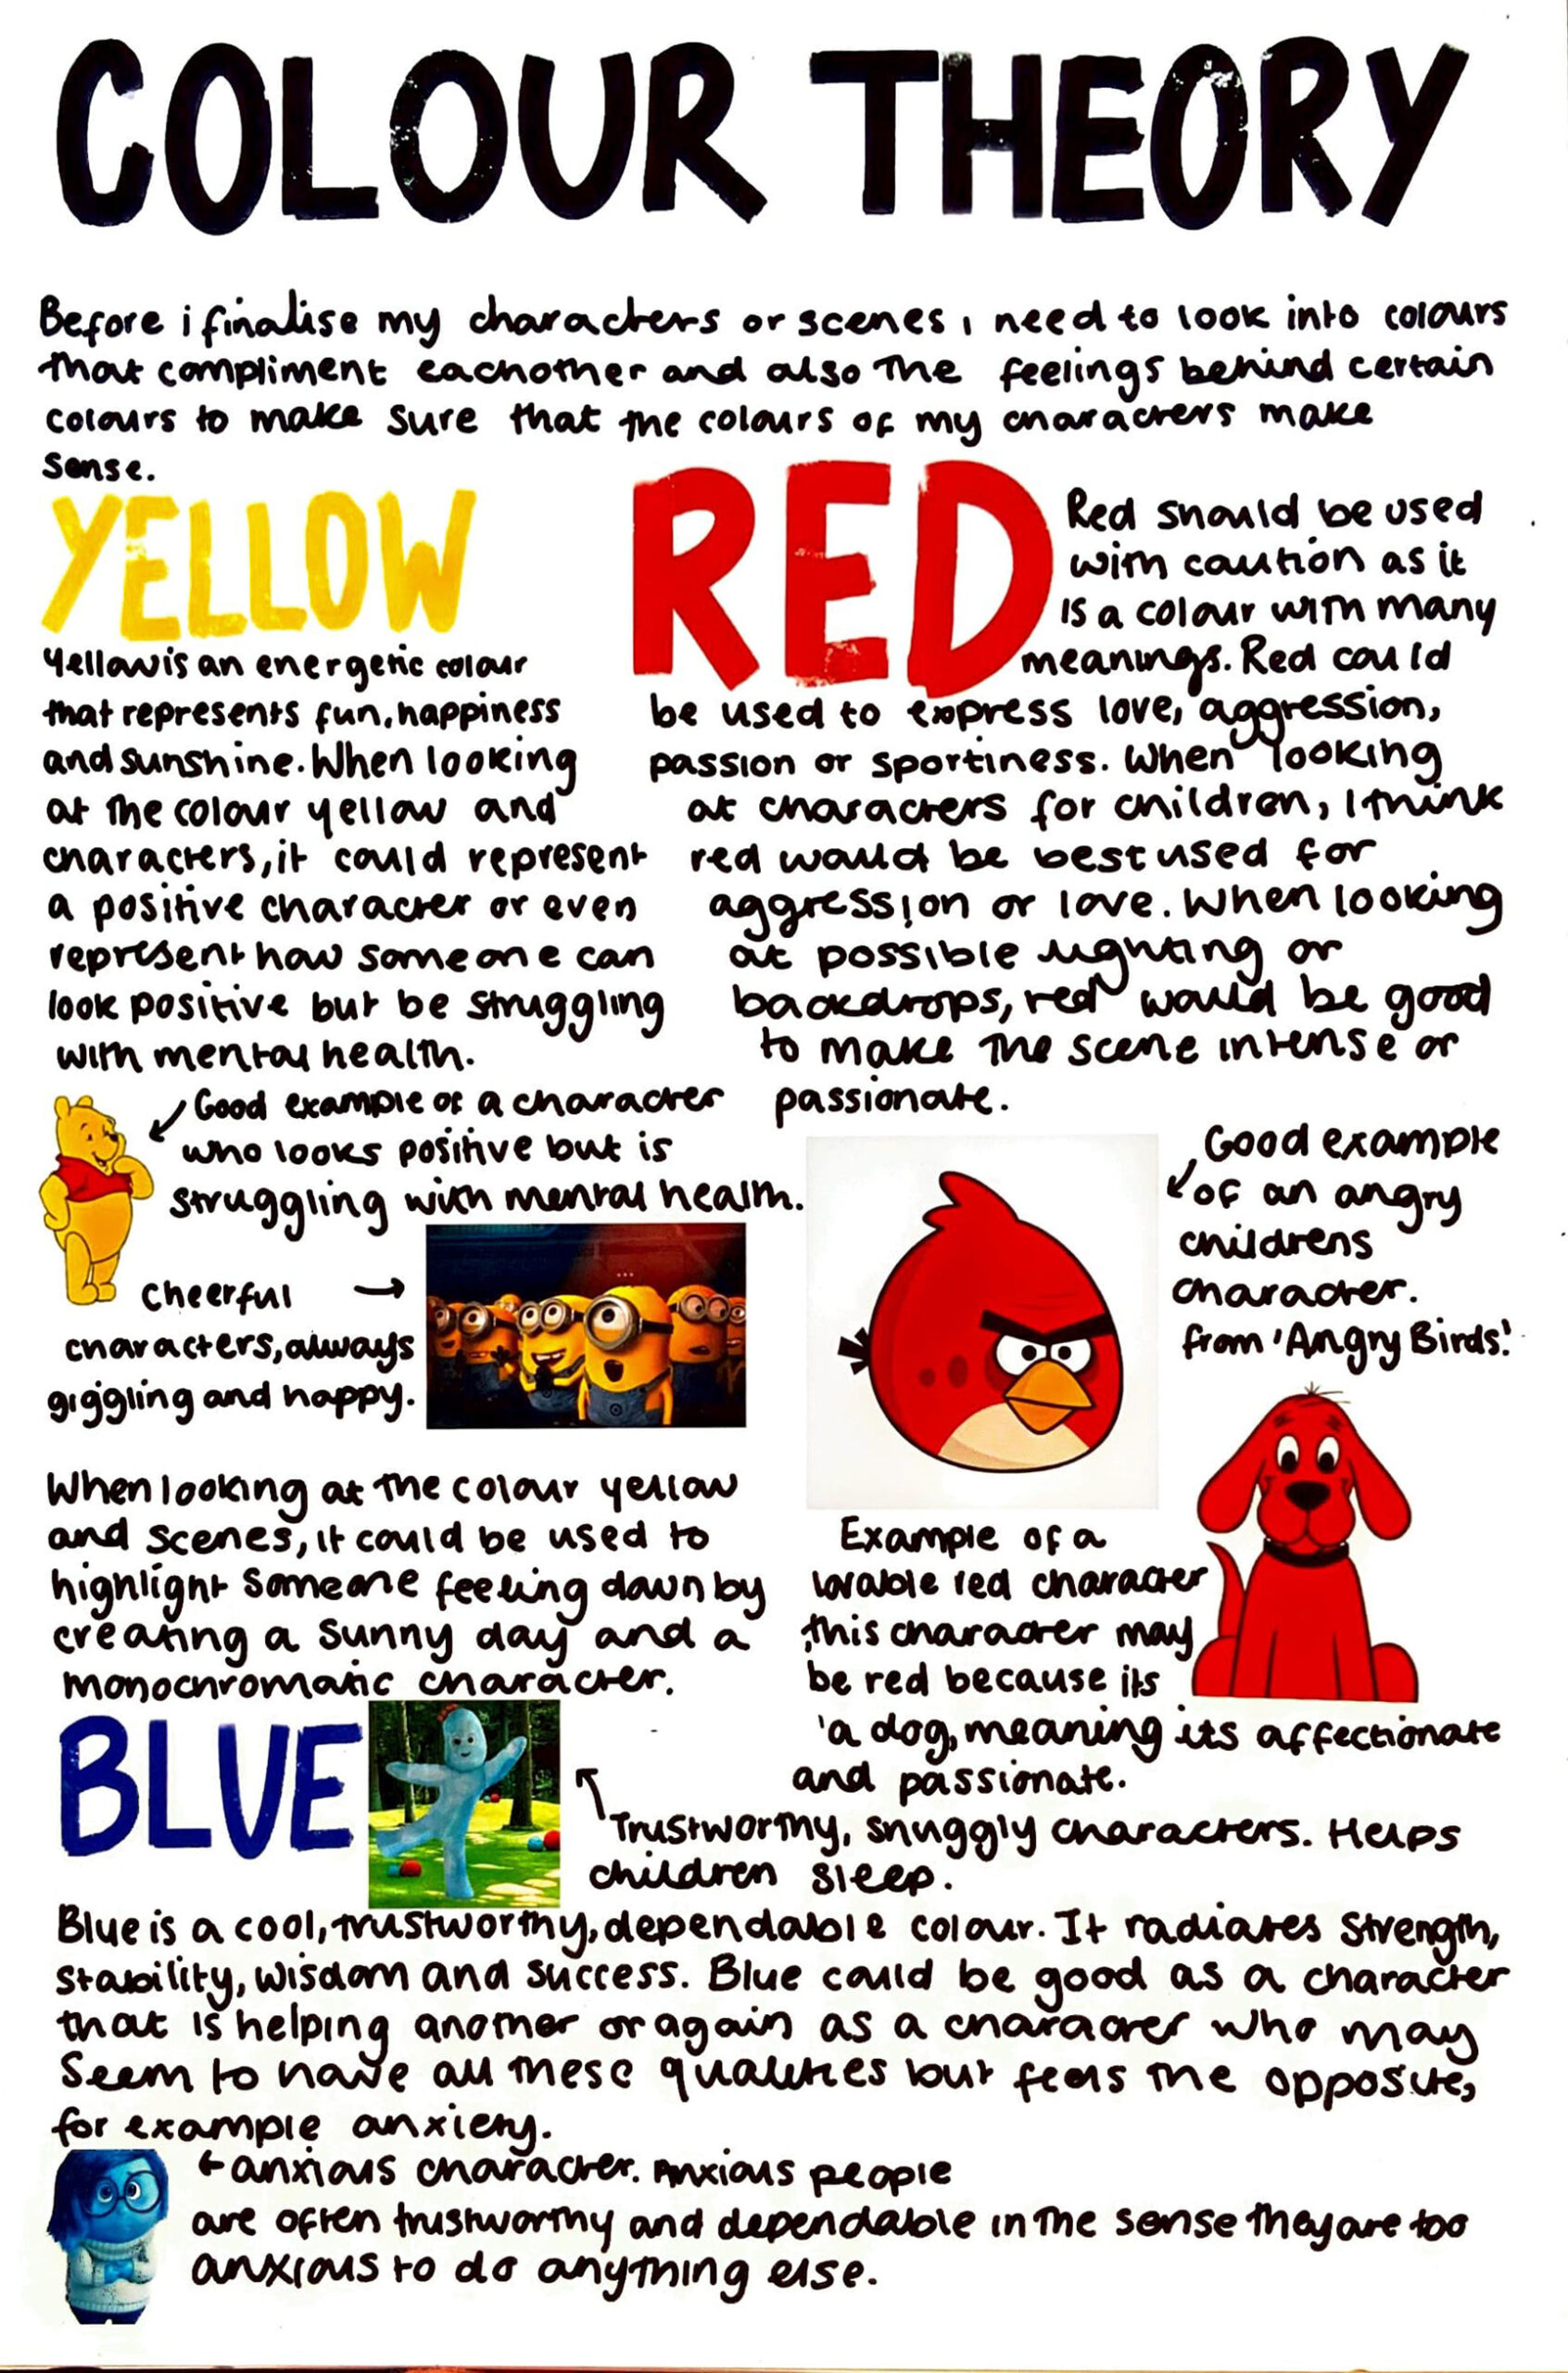 COLOUR THEORY
Before i finalise my characters or scenes i need to look into colours
that compliment eachother and also the feelings behind certain
colours to make sure that the colours of my characters make
sense.
YELLOW
Yellow is an energetic colour
that represents fun, happiness
and sunshine. When looking
at the colour yellow and
characters, it could represent
a positive character or even
represent how someone can
look positive but be struggling
with mental health.
Good example of a character
who looks positive but is
struggling with mental health.
Cheerful
characters, always
giggling and happy.
When looking at the colour yellow
and scenes, it could be used to
highlight someone feeling down by
creating a sunny day and a
monochromatic character.
RED
Red should be used
with caution as it
is a colour with many
meanings. Red could
be used to express love, aggression,
passion or sportiness. When looking
at characters for children, I think
red would be best used for
aggression or love. When looking
at possible lighting or
backdrops, red would be good
to make the scene intense or
passionate.
Good example
of an angry
childrens
character.
from 'Angry Birds!'
Example of a
lovable red character
this character may
be red because its
a dog, meaning its affectionate
and passionate.
BLUE
Trustworthy, snuggly characters. Helps
children sleep.
Blue is a cool, trustworthy, dependable colour. It radiates strength,
stability, wisdom and success. Blue could be good as a character
that is helping another or again as a character who may
seem to have all these qualities but feels the opposite,
for example anxiety.
anxious character. Anxious people
are often trustworthy and dependable in the sense they are too
anxious to do anything else.